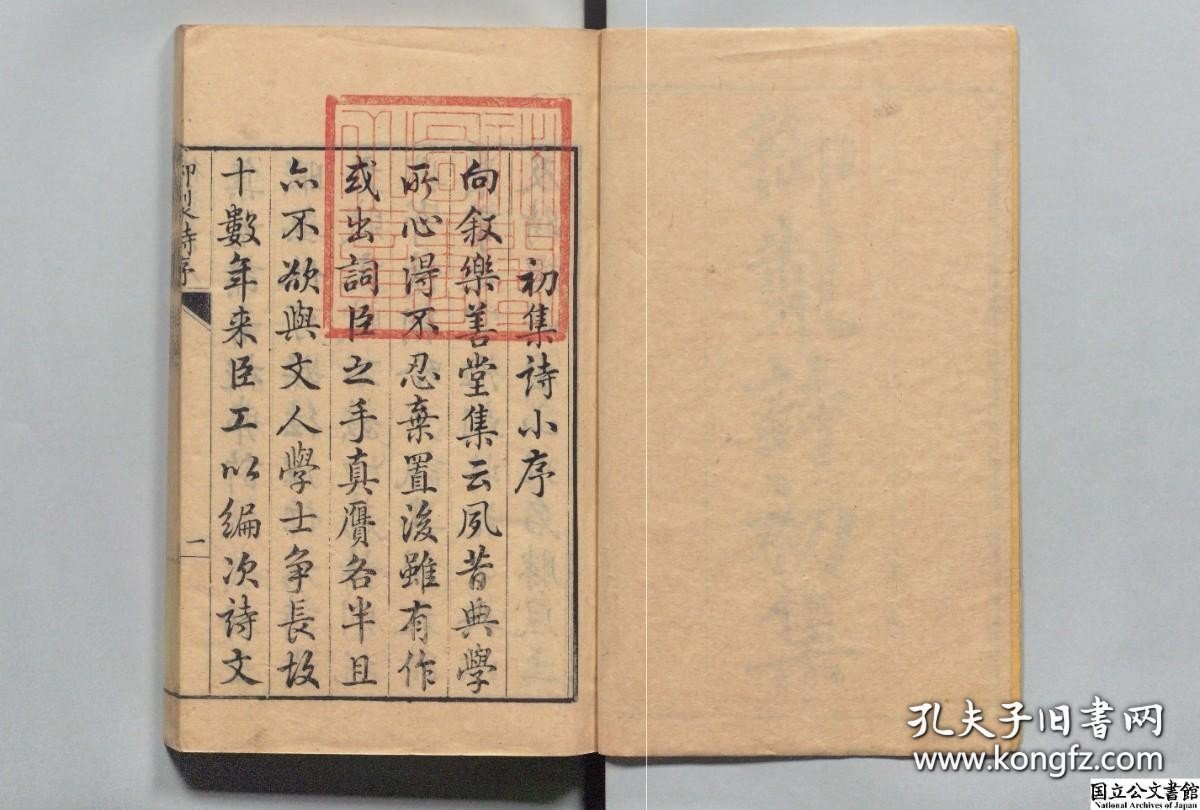 初集詩小序
向叙樂善堂集云夙昔典學
所心得不忍棄置後雖有作
或出詞臣之手真贋各半且
亦不欲與文人學士争長故
十數年来臣工以編次詩文
御製詩序
一
孔夫子旧书网
www.kongfz.com
国立公文書館
National Archives of Japan